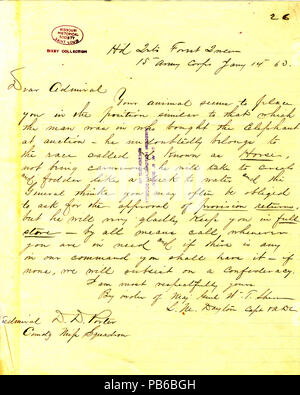 26
MISSOURI
HISTORICAL
SOCIETY
SAINT LOUIS
BIXBY COLLECTION
Hd Qrts Forrest Queen
15 Army Corps Jany 14th 63.
Dear Admiral
Your animal seems to place
you in the position similar to that which
the man was in who bought the Elephant
at auction – he undoubtedly belongs to
the race called & known as Horse,
not being he will take to
of fodder like a duck to water & the
General thinks you may often be obliged
to ask for the approval of provision returns,
but he will very gladly keep you in full
store – by all means call whenever
you are in need & if there is any
in our command you shall have it – if
none, we will outsit on a Confederacy.
I am most respectfully yours
By order of Maj Genl W. T. Sherman
L. M. Dayton Capt & A.D.C.
Admiral D. D. Porter
Comdg Miss Squadron
alamy
PB6BGH